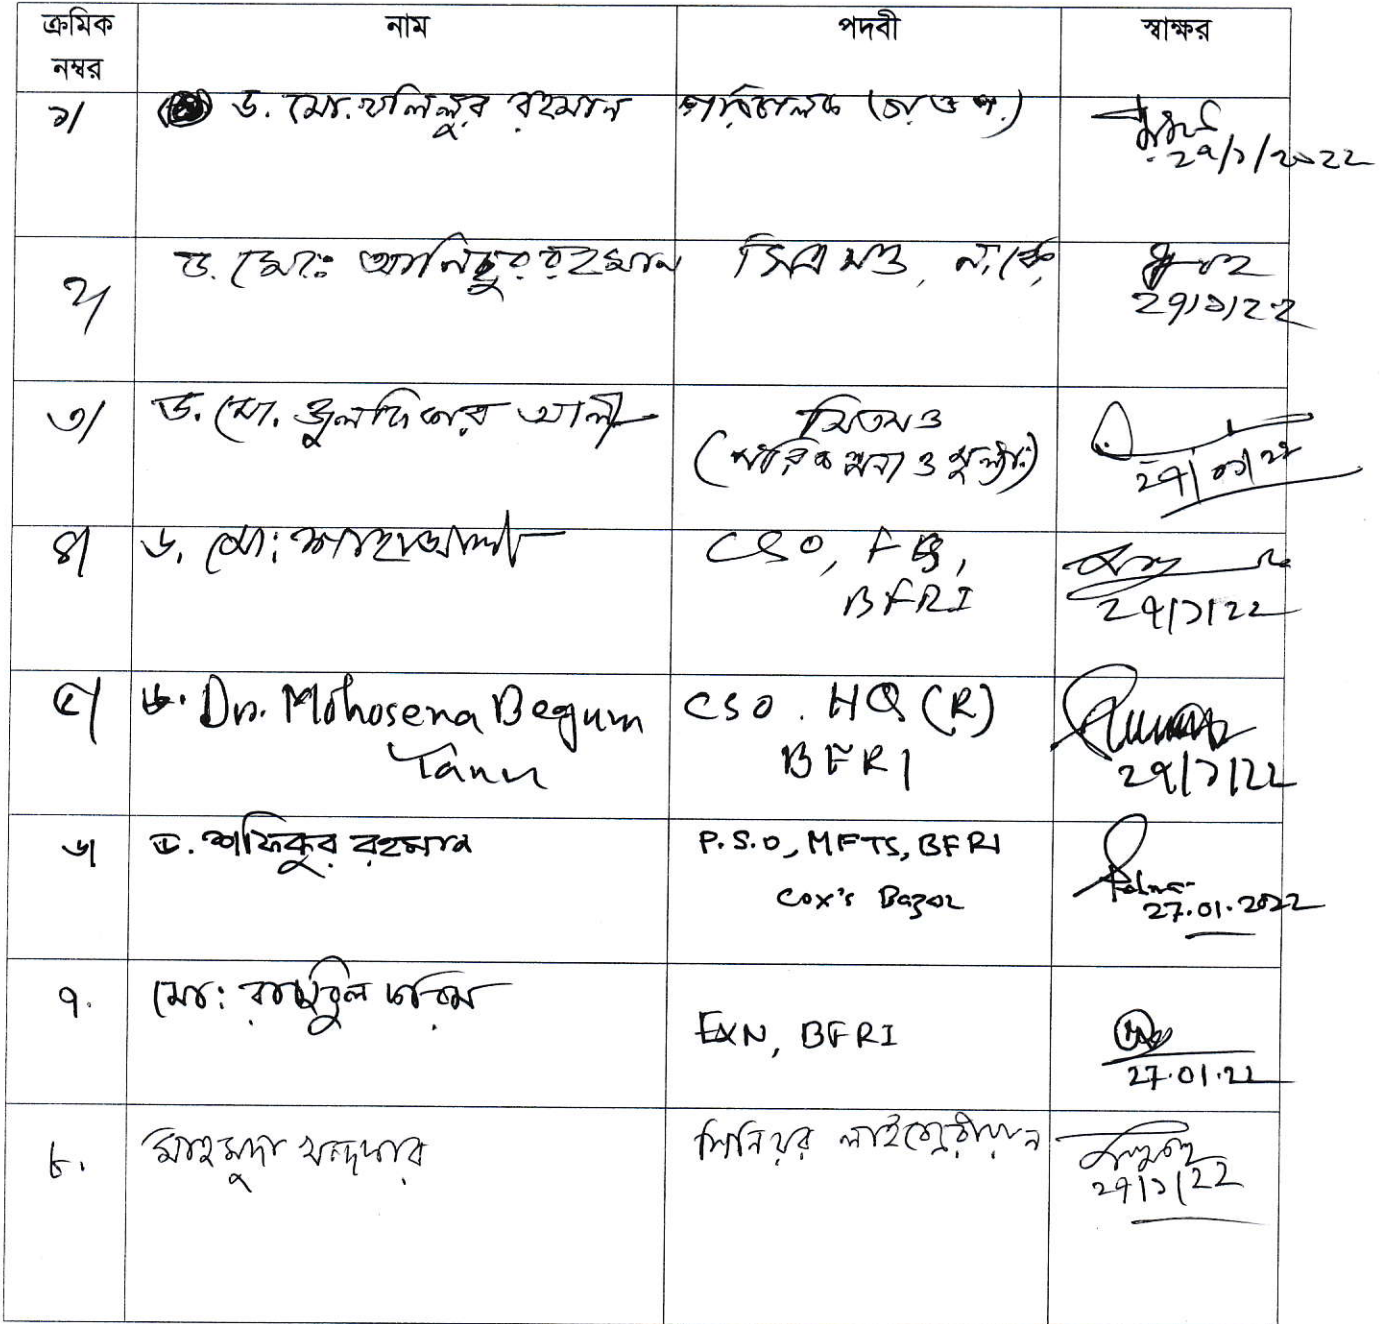 ক্রমিক নম্বর নাম পদবী স্বাক্ষর
১/ ড. মো. খলিলুর রহমান পরিচালক (প্র. ও প.)
২৭/১/২০২২
২/ ড. মোঃ আনিছুর রহমান সিএসও, ন.কে,
২৭/১/২২
৩/ ড. মো. জুলফিকার আলী সিএসও
(পরিকল্পনা ও মূল্যা:)
২৭/০১/২২
৪/ ড. মো: শাহাআলী CSO, FS,
BFRI
২৭/১/২২
৫/ Dr. Mohosena Begum CSO. HQ (R)
Tanu BFRI
২৭/১/২২
৬/ ড. শফিকুর রহমান P.S.O, MFTS, BFRI
Cox's Bazar
27.01.2022
৭. মো:
EXN, BFRI
27.01.22
৮. মাহমুদা খন্দকার সিনিয়র লাইব্রেরীয়ান
২৭/১/২২